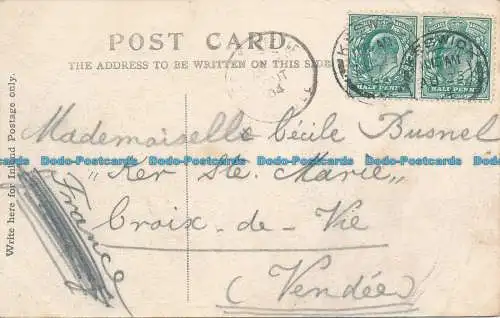 POST CARD.
THE ADDRESS TO BE WRITTEN ON THIS SIDE
Write here for Inland Postage only.
HALF PENNY
HALF PENNY
KESWICK
04
Mademoiselle Cécile Busnel
"Ker Ste. Marie"
Croix-de-Vie
(Vendée)
France
Dodo-Postcards Dodo-Postcards Dodo-Postcards Dodo-Postcards
Dodo-Postcards Dodo-Postcards Dodo-Postcards Dodo-Postcards